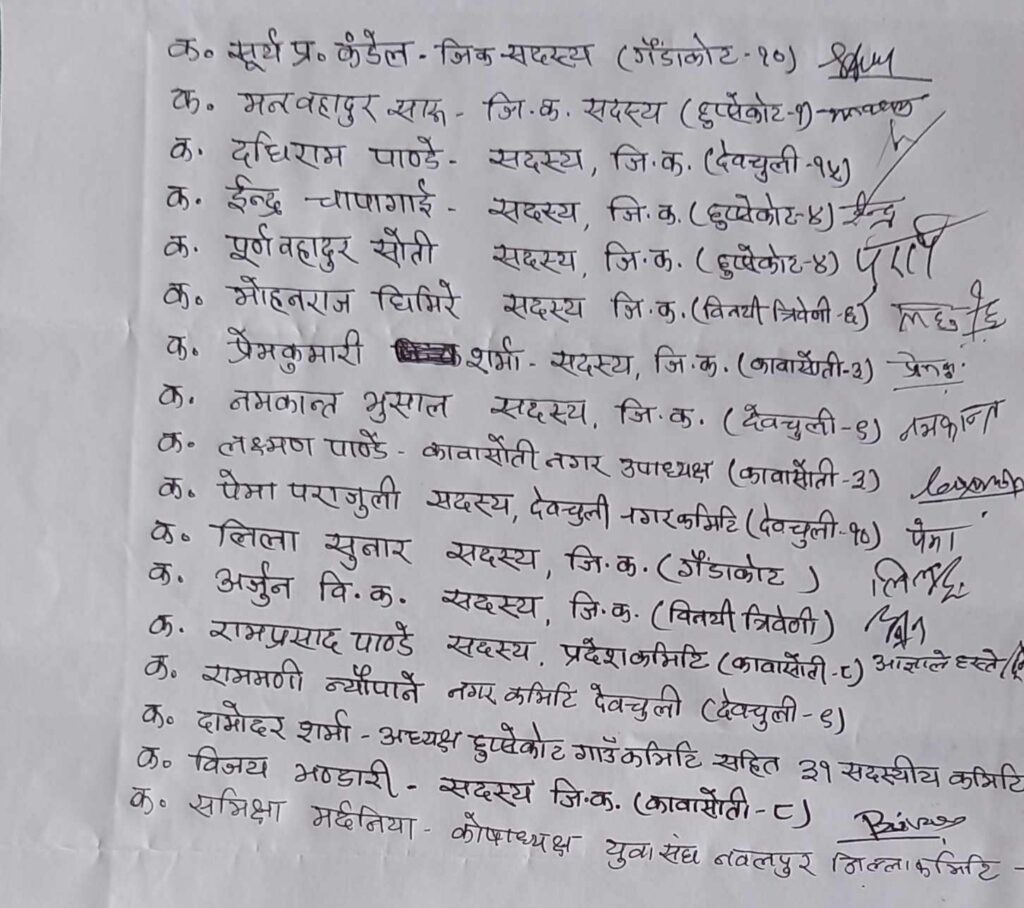 क. सूर्य प्र. कंडेल - जिक सदस्य (गैंडाकोट - १०)
क. मनवहादुर सारू - जि.क. सदस्य (हुप्सेकोट-१)
क. दधिराम पाण्डे - सदस्य, जि.क. (देवचुली-१५)
क. ईन्द्र चापागाई - सदस्य, जि.क. (हुप्सेकोट-४) ईन्द्र
क. पूर्णवहादुर सोती सदस्य, जि.क. (हुप्सेकोट-४)
क. मोहनराज घिमिरे सदस्य जि.क. (विनयी त्रिवेनी-६)
क. प्रेमकुमारी शर्मा - सदस्य, जि.क. (कावासोती-३)
क. नमकान्त भुसाल सदस्य, जि.क. (देवचुली-९) नमकान्त
क. लक्ष्मण पाण्डे - कावासोती नगर उपाध्यक्ष (कावासोती-३)
क. पेमा पराजुली सदस्य, देवचुली नगरकमिटि (देवचुली-१०) पेमा
क. लिला सुनार सदस्य, जि.क. (गैंडाकोट )
क. अर्जुन वि.क. सदस्य, जि.क. (विनयी त्रिवेणी)
क. रामप्रसाद पाण्डे सदस्य, प्रदेशकमिटि (कावासोती-८) आज्ञाले हस्ते
क. राममणी न्यौपाने नगर कमिटि देवचुली (देवचुली-९)
क. दामोदर शर्मा - अध्यक्ष हुप्सेकोट गाउँकमिटि सहित ३१ सदस्यीय कमिटि
क. विजय भण्डारी - सदस्य जि.क. (कावासोती-८)
क. समिक्षा मर्दनिया - कोषाध्यक्ष युवा संघ नवलपुर जिल्लाकमिटि -